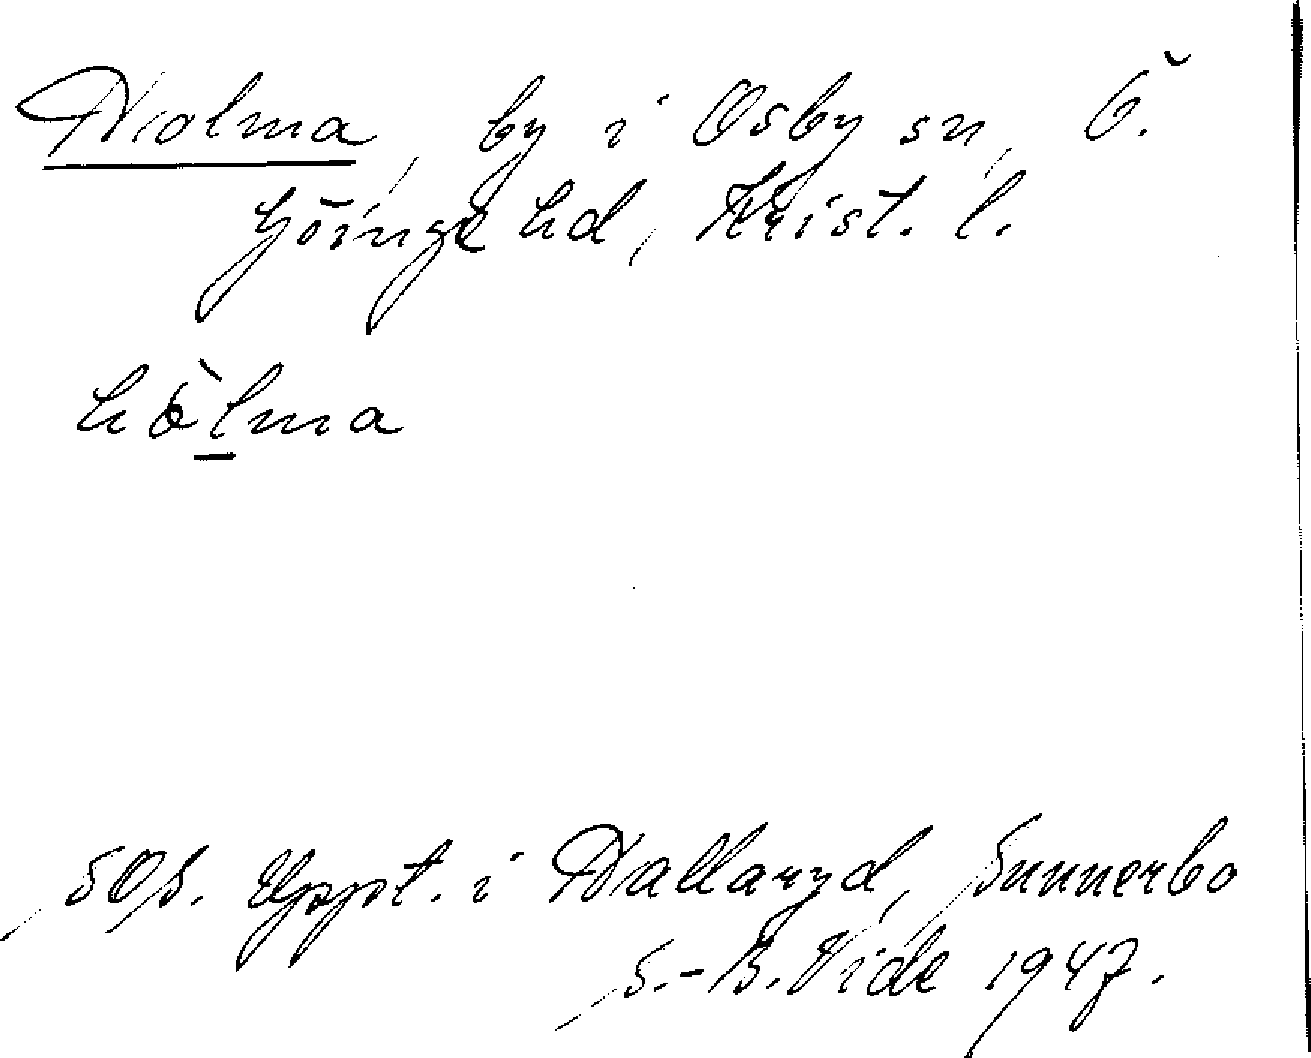 Holma, by i Osby sn, Ö.
Göinge hd, Krist. l.
hòlma
SOf. Uppt. i Hallaryd, Sunnerbo
S.-B. Vide 1947.